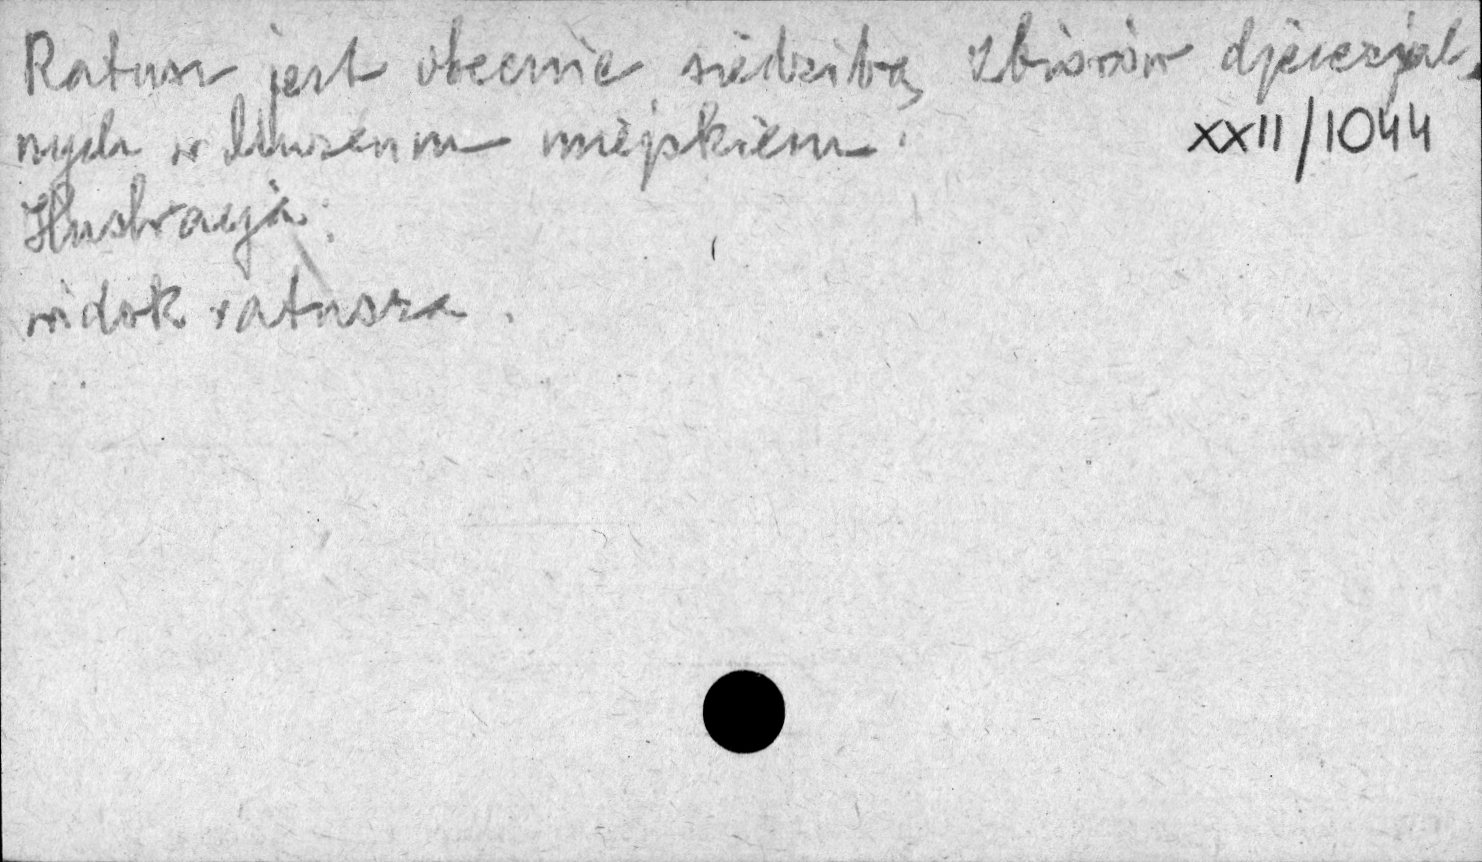 Ratusz jest obecnie siedzibą zbiorów djecezjal
nych w Muzeum miejskiem.
XXII/1044
Ilustracja:
widok ratusza.